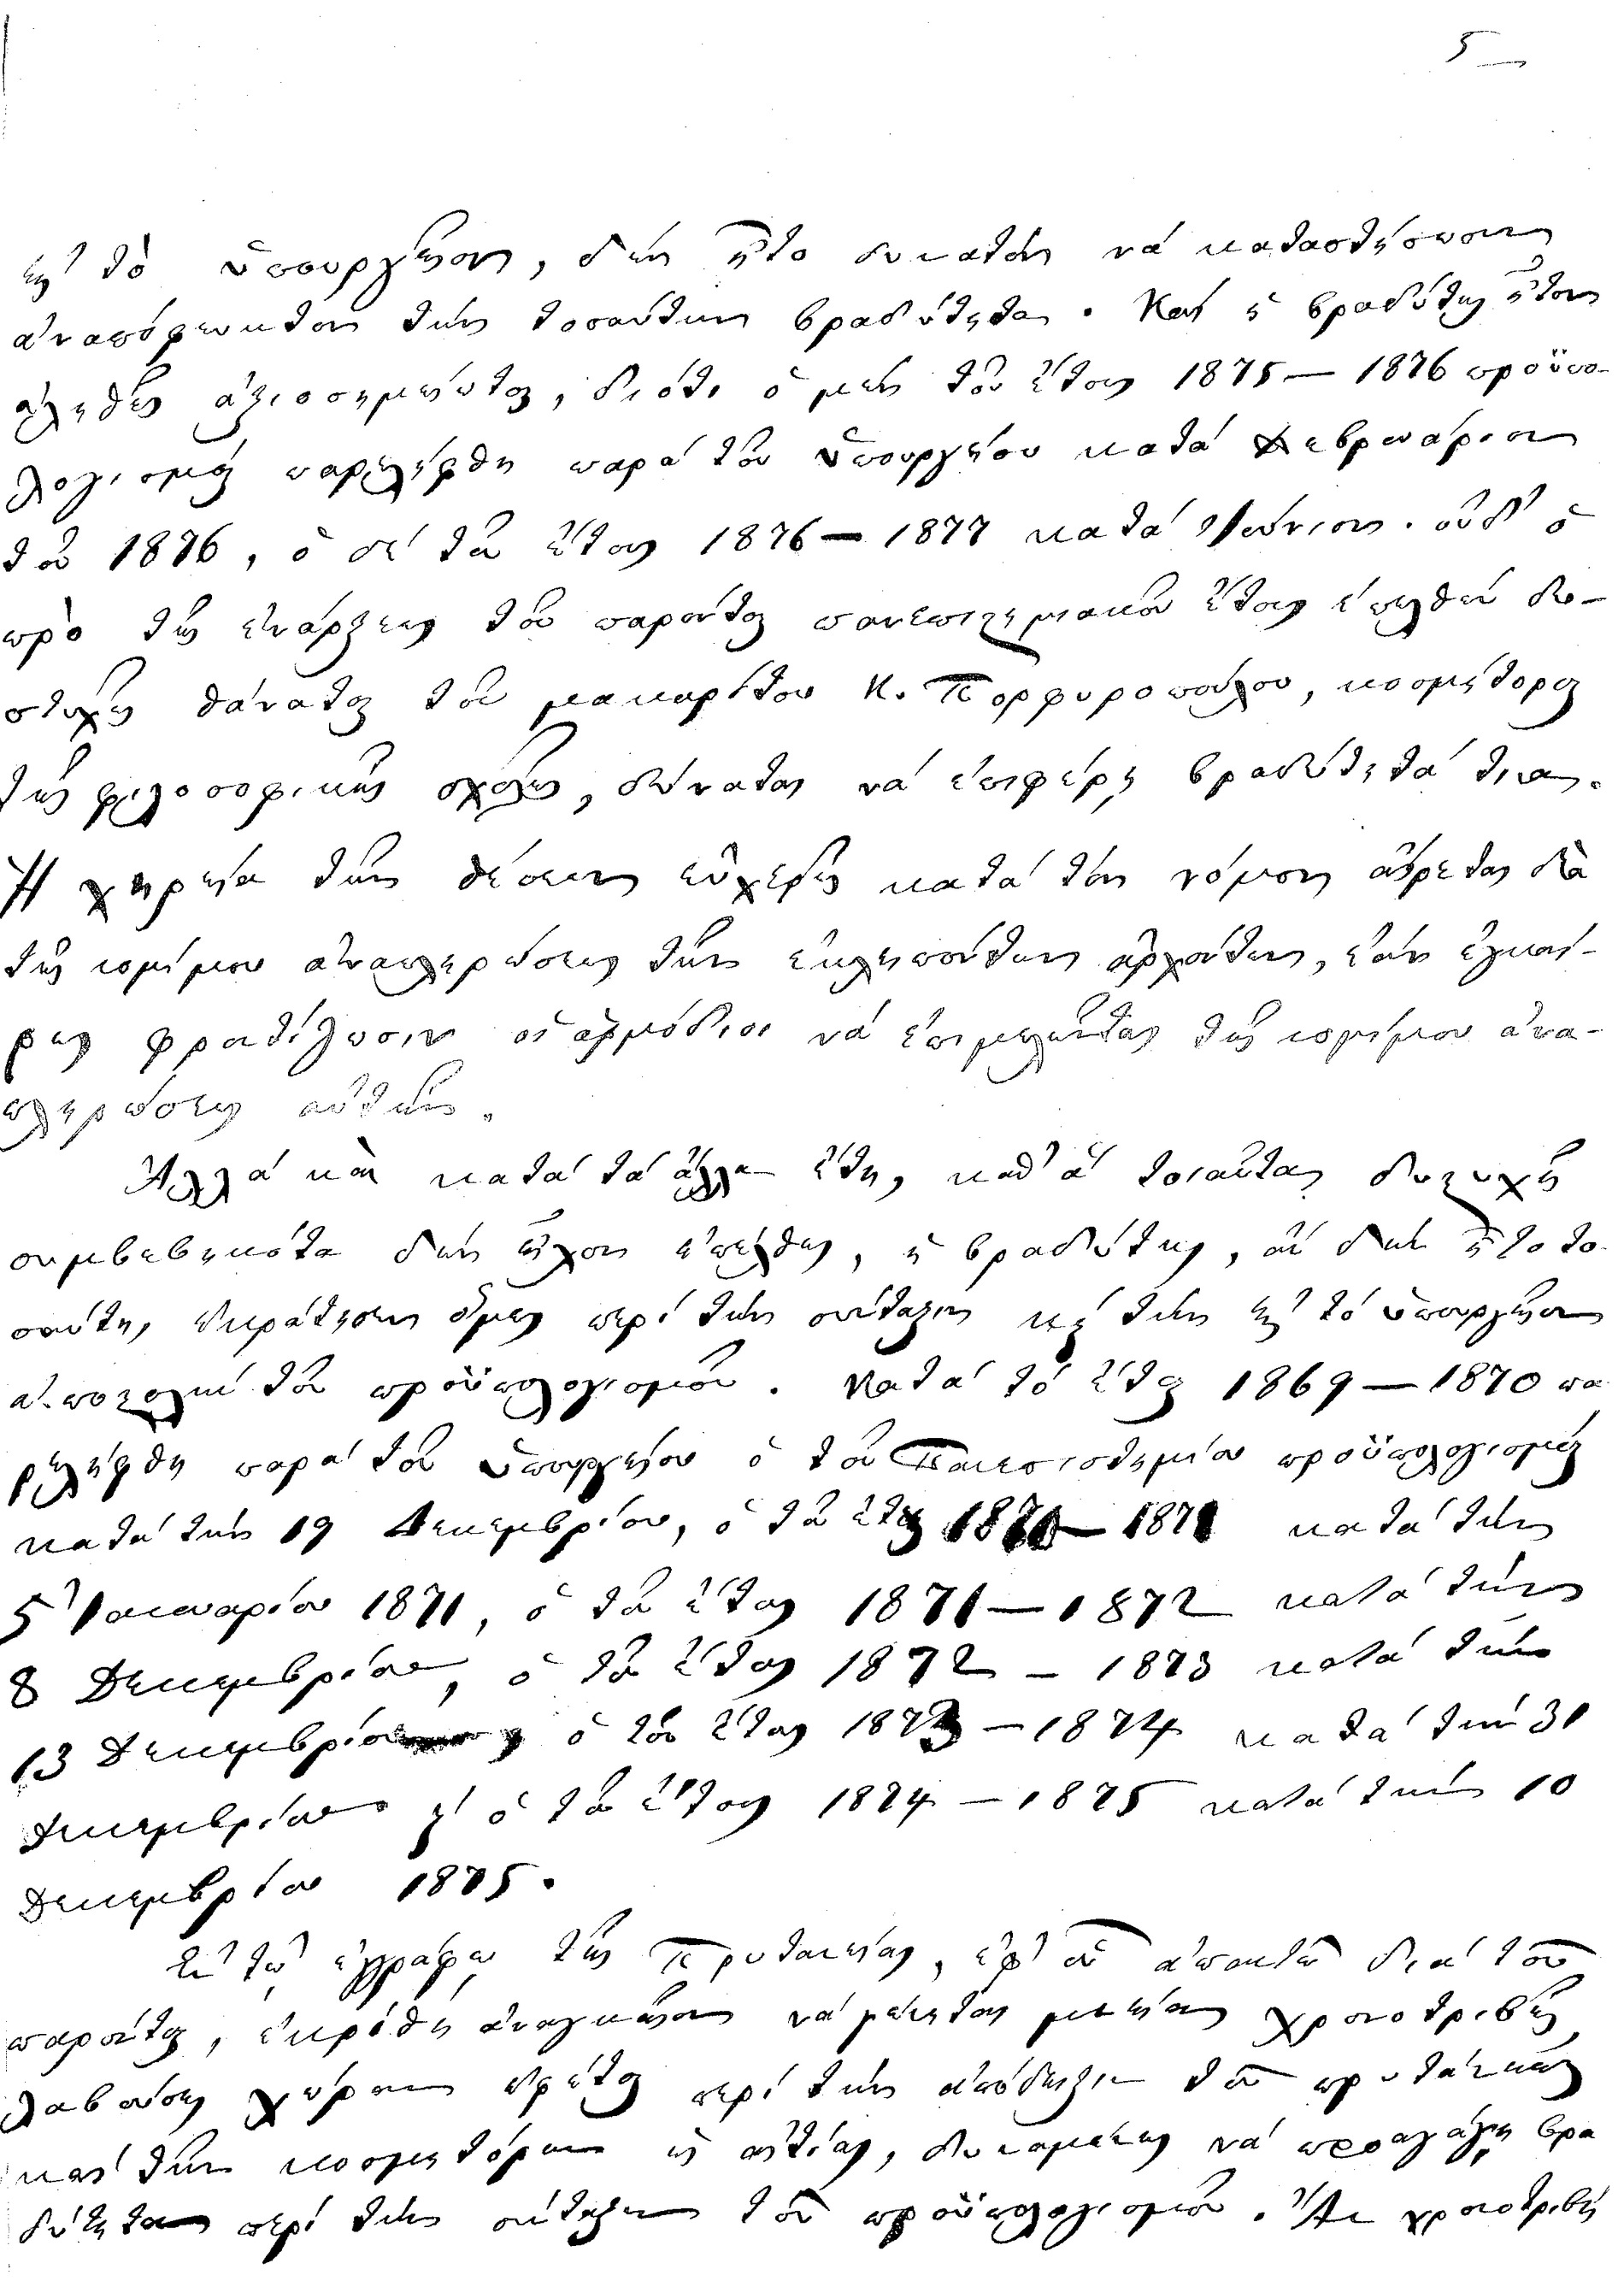 5
εἰς τὸ ὑπουργεῖον, δὲν ἦτο δυνατὸν νὰ καταστήσωσιν
ἀναπόφευκτον τὴν τοσαύτην βραδύτητα. Καὶ ἡ βραδύτης ἦτον
ἀληθῶς ἀξιοσημείωτος, διότι ὁ μὲν τοῦ ἔτους 1875 — 1876 προϋπο-
λογισμὸς παρελήφθη παρὰ τοῦ ὑπουργείου κατὰ Φεβρουάριον
τοῦ 1876, ὁ δὲ τοῦ ἔτους 1876 — 1877 κατὰ Ἰούνιον. οὐδ' ὁ
πρὸ τῆς ἐνάρξεως τοῦ παρόντος πανεπιστημιακοῦ ἔτους ἐπελθὼν δυ-
στυχὴς θάνατος τοῦ μακαρίτου Κ. Πορφυροπούλου, κοσμήτορος
τῆς φιλοσοφικῆς σχολῆς, δύναται νὰ ἐπιφέρῃ βραδύτητά τινα.
Ἡ χηρεία τῶν θέσεων εὐχερῶς κατὰ τὸν νόμον αἴρεται διὰ
τῆς νομίμου ἀναπληρώσεως τῶν ἐκλιπόντων ἀρχόντων, ἐὰν ἐγκαί-
ρως φροντίζωσιν οἱ ἁρμόδιοι νὰ ἐπιμελῶνται τῆς νομίμου ἀνα-
πληρώσεως αὐτῶν.
Ἀλλὰ καὶ κατὰ τὰ ἄλλα ἔτη, καθ' ἃ τοιαῦτα δυστυχῆ
συμβεβηκότα δὲν εἶχον ἐπέλθει, ἡ βραδύτης, ἂν δὲν ἦτο το-
σαύτη, ἐκράτησεν ὅμως περὶ τὴν σύνταξιν καὶ τὴν εἰς τὸ ὑπουργεῖον
ἀποστολὴν τοῦ προϋπολογισμοῦ. Κατὰ τὸ ἔτος 1869 — 1870 πα-
ρελήφθη παρὰ τοῦ ὑπουργείου ὁ τοῦ Πανεπιστημίου προϋπολογισμὸς
κατὰ τὴν 19 Δεκεμβρίου, ὁ τοῦ ἔτους 1870 — 1871 κατὰ τὴν
5 Ἰανουαρίου 1871, ὁ τοῦ ἔτους 1871 — 1872 κατὰ τὴν
8 Δεκεμβρίου, ὁ τοῦ ἔτους 1872 — 1873 κατὰ τὴν
13 Δεκεμβρίου, ὁ τοῦ ἔτους 1873 — 1874 κατὰ τὴν 31
Δεκεμβρίου καὶ ὁ τοῦ ἔτους 1874 — 1875 κατὰ τὴν 10
Δεκεμβρίου 1875.
Ἐν τῷ ἐγγράφῳ τῆς Πρυτανείας, ἐφ' οὗ ἀπαντῶ διὰ τοῦ
παρόντος, ἐκρίθη ἀναγκαῖον νὰ γίνηται μνεία χρονοτριβῆς
λαβούσης χώραν πρὸ τῆς περὶ τὴν ἀπόδειξιν τοῦ πρυτάνεως
καὶ τῶν κοσμητόρων ὡς αἰτίας, δυναμένης νὰ προαγάγῃ βρα-
δύτητα περὶ τὴν σύνταξιν τοῦ προϋπολογισμοῦ. Ἂν χρονοτριβὴ